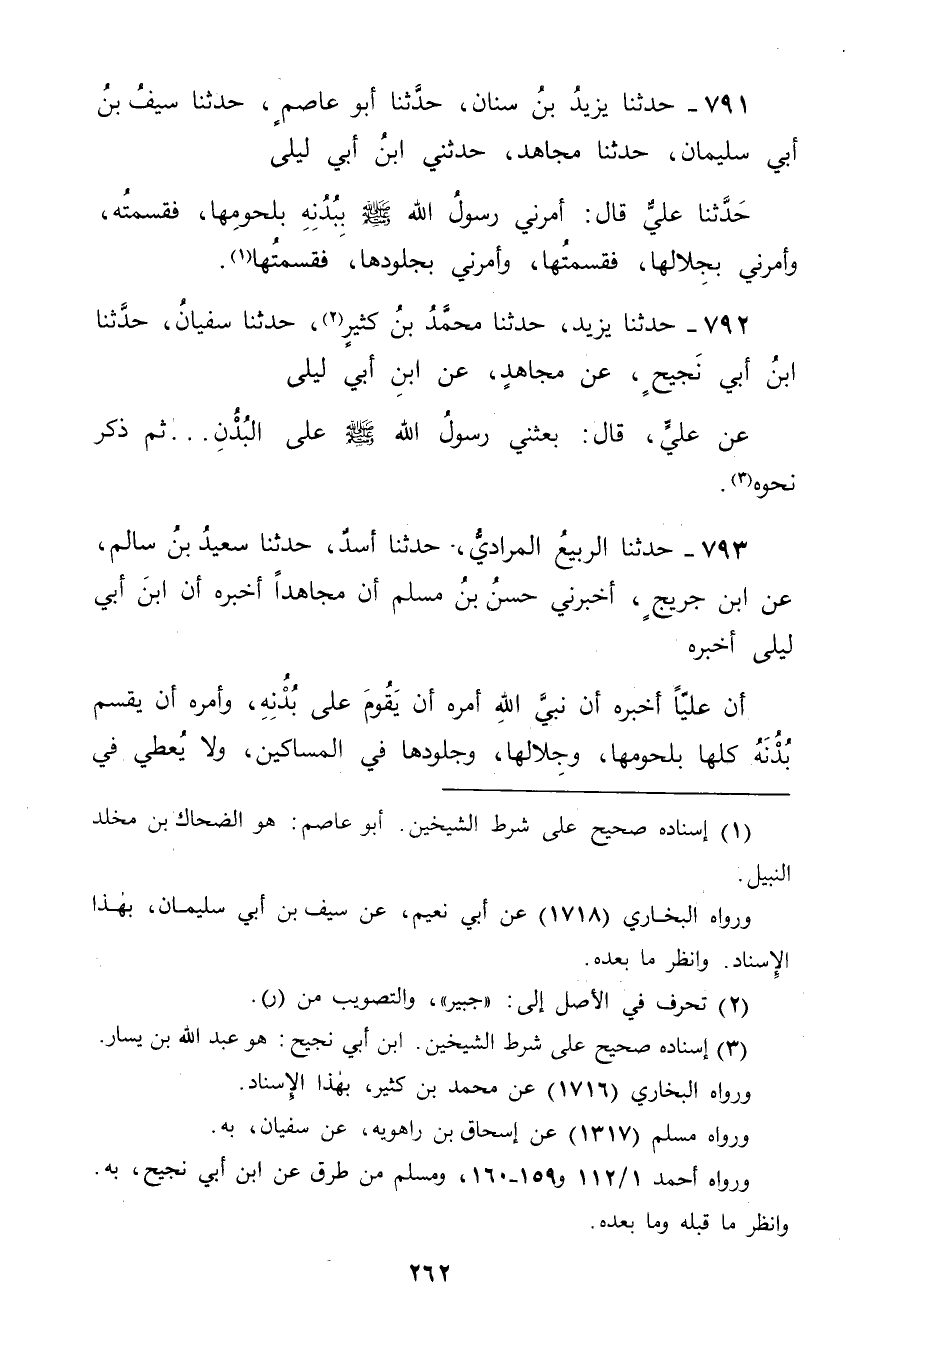 ٧٩١ ـ حدثنا يزيدُ بنُ سنان، حدَّثنا أبو عاصمٍ، حدثنا سيفُ بنُ
أبي سليمان، حدثنا مجاهد، حدثني ابنُ أبي ليلى
حَدَّثنا عليٌّ قال: أمرني رسولُ الله ﷺ بِبُدُنِهِ بلحومِها، فقسمتُه،
وأمرني بجِلالها، فقسمتُها، وأمرني بجلودها، فقسمتُها(١).
٧٩٢ ـ حدثنا يزيد، حدثنا محمَّدُ بنُ كثيرٍ(٢)، حدثنا سفيانُ، حدَّثنا
ابنُ أبي نَجيحٍ، عن مجاهدٍ، عن ابنِ أبي ليلى
عن عليٍّ، قال: بعثني رسولُ الله ﷺ على البُدُنِ... ثم ذكر
نحوه(٣).
٧٩٣ ـ حدثنا الربيعُ المراديُّ، حدثنا أسدٌ، حدثنا سعيدُ بنُ سالم،
عن ابن جريجٍ، أخبرني حسنُ بنُ مسلم أن مجاهداً أخبره أن ابنَ أبي
ليلى أخبره
أن عليّاً أخبره أن نبيَّ اللهِ أمره أن يَقُومَ على بُدْنِهِ، وأمره أن يقسم
بُدْنَهُ كلها بلحومها، وجِلالها، وجلودها في المساكين، ولا يُعطي في
(١) إسناده صحيح على شرط الشيخين. أبو عاصم: هو الضحاك بن مخلد
النبيل.
ورواه البخاري (١٧١٨) عن أبي نعيم، عن سيف بن أبي سليمان، بهٰذا
الإِسناد. وانظر ما بعده.
(٢) تحرف في الأصل إلى: «جبير»، والتصويب من (ر).
(٣) إسناده صحيح على شرط الشيخين. ابن أبي نجيح: هو عبد الله بن يسار.
ورواه البخاري (١٧١٦) عن محمد بن كثير، بهٰذا الإِسناد.
ورواه مسلم (١٣١٧) عن إسحاق بن راهويه، عن سفيان، به.
ورواه أحمد ١١٢/١ و١٥٩ـ١٦٠، ومسلم من طرق عن ابن أبي نجيح، به.
وانظر ما قبله وما بعده.
٢٦٢